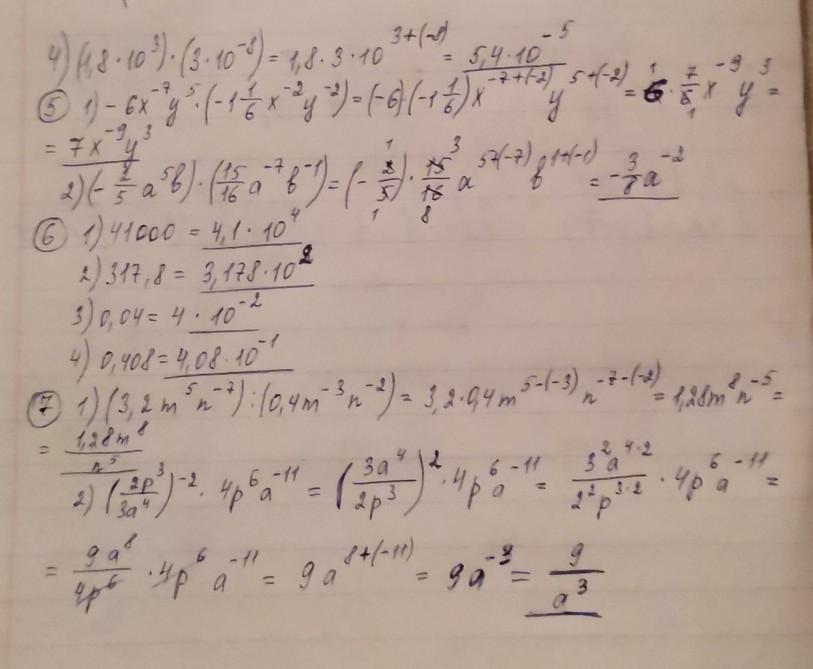 4) (1,8·10³)·(3·10⁻⁸) = 1,8·3·10³⁺⁽⁻⁸⁾ = 5,4·10⁻⁵
⑤ 1) -6x⁻⁷y⁵·(-1 1/6 x⁻²y⁻²) = (-6)·(-1 1/6)x⁻⁷⁺⁽⁻²⁾y⁵⁺⁽⁻²⁾ = 6·7/6 x⁻⁹y³ =
= 7x⁻⁹y³
2) (-2/5 a⁵b)·(15/16 a⁻⁷b⁻¹) = (-2/5)·15/16 a⁵⁺⁽⁻⁷⁾b¹⁺⁽⁻¹⁾ = -3/8 a⁻²
⑥ 1) 41000 = 4,1·10⁴
2) 317,8 = 3,178·10²
3) 0,04 = 4·10⁻²
4) 0,408 = 4,08·10⁻¹
⑦ 1) (3,2m⁵n⁻⁷):(0,4m⁻³n⁻²) = 3,2·0,4m⁵⁻⁽⁻³⁾n⁻⁷⁻⁽⁻²⁾ = 1,28m⁸n⁻⁵ =
= 1,28m⁸/n⁵
2) (2p³/3a⁴)⁻²·4p⁶a⁻¹¹ = (3a⁴/2p³)²·4p⁶a⁻¹¹ = 3²a⁴·²/2²p³·²·4p⁶a⁻¹¹ =
= 9a⁸/4p⁶·4p⁶a⁻¹¹ = 9a⁸⁺⁽⁻¹¹⁾ = 9a⁻³ = 9/a³